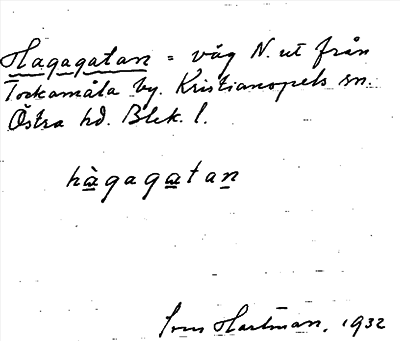 Hagagatan = väg N. ut från
Torkamåla by. Kristianopels sn.
Östra hd. Blek. l.
hàgagatan
Hartman, 1932